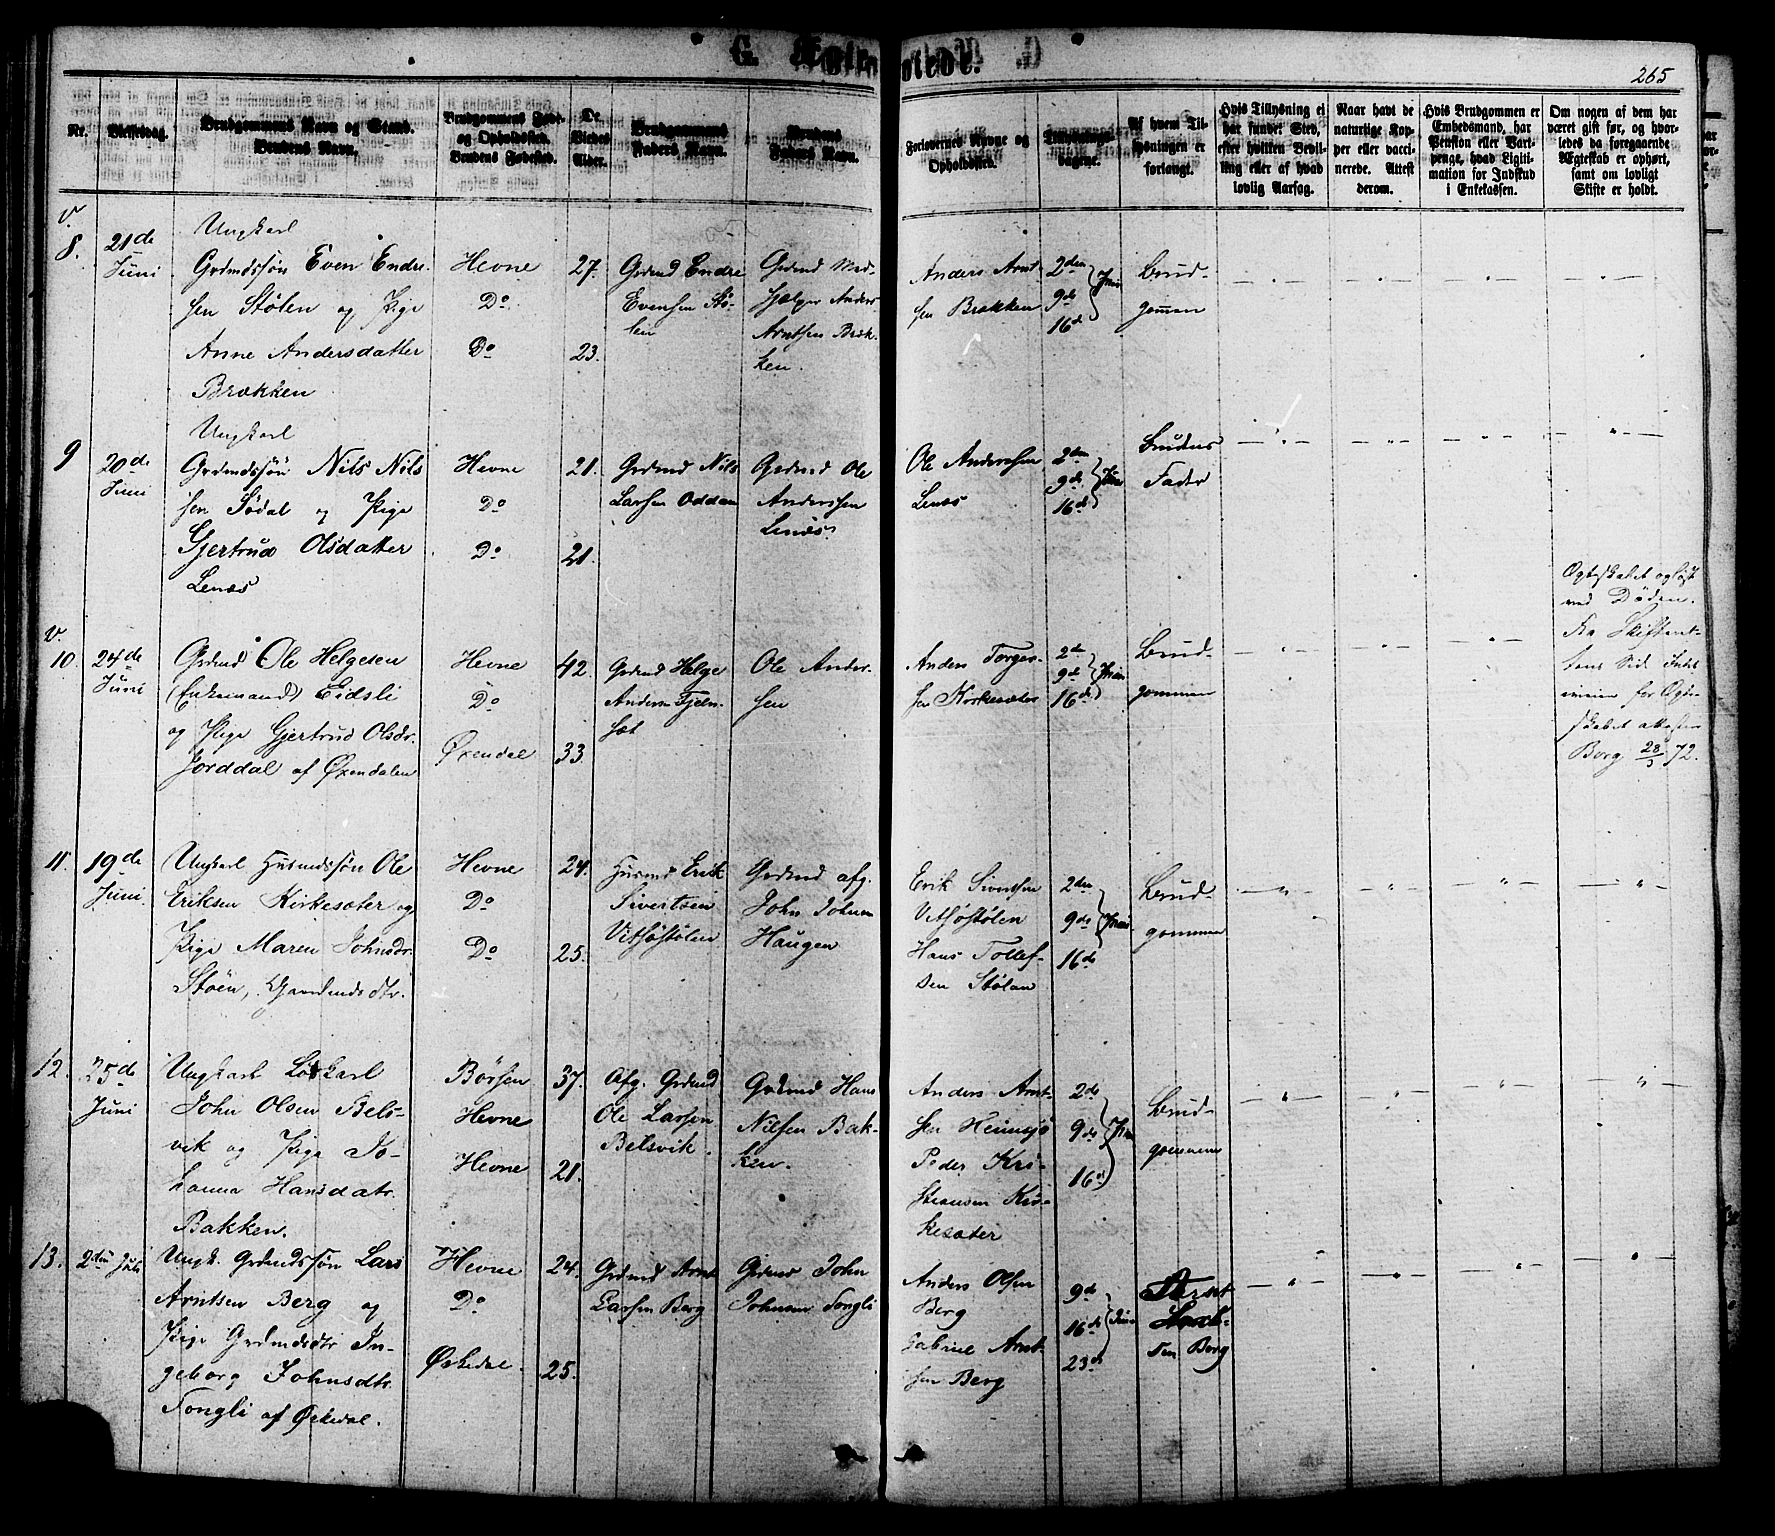 265
Nr.
Vielsesdag.
Brudgommens Navn og Stand.
Brudens Navn.
Brudgommens Føde-
og Opholdssted.
Brudens Fødested.
De
Viedes
Alder.
Brudgommens
Faders Navn.
Brudens
Faders Navn.
Forlovernes Navne og
Opholdssted.
Tillysnings-
dagene.
Af hvem Til-
lysningen er
forlangt.
Hvis Tillysning ei
har fundet Sted,
efter hvilken Bevil-
ling eller af hvad
lovlig Aarsag.
Naar havt de
naturlige Kop-
per eller vacci-
nerede. Attest
derom.
Hvis Brudgommen er
Embedsmand, har
Pension eller Vart-
penge, hvad Ligiti-
mation for Indskud
i Enkekassen.
Om nogen af dem har
været gift før, og hvor-
ledes da foregaaende
Ægteskab er ophørt,
samt om lovligt
Skifte er holdt.
v.
8.
21de
Juni
Ungkarl
Grdmdssøn Even Endre-
sen Stølen og Pige
Anne Andersdatter
Brækken
Hevne
Do
Do
27.
23.
Grdmd Endre
Evensen Stø-
len
Grdmd Med-
hjælper Anders
Arntsen Bræk-
ken.
Anders Arnt-
sen Brækken
2den
9de
16de
Juni
Brud-
gommen
9
20de
Juni
Ungkarl
Grdmdssøn Nils Nils
sen Sødal og Pige
Gjertrud Olsdatter
Lenæs
Hevne
Do
Do
21.
21.
Grdmd Nils
Larsen Oddan
Grdmd Ole
Anderssen
Lenæs
Ole Anderssen
Lenæs
2den
9de
16de
Juni
Brudens
Fader
v.
10.
24de
Juni
Grdmd Ole Helgesen
(Enkemand) Eidsli
og Pige Gjertrud Olsdr.
Jorddal af Øxendalen
Hevne
Do
Øxendal
42.
33.
Grdmd Helge
Andersen Fjeln-
set
Ole Ander-
sen
Anders Torger-
sen Kirkesæter
2de
9de
16de
Juni
Brud-
gommen
Ægteskabet opløst
ved Døden.
Fra Skifteret-
tens Side Intet
iveien for Ægte-
skabet attesterer
Borg 28/5 72.
11.
19de
Juni.
Ungkarl Husmdssøn Ole
Eriksen Kirkesæter og
Pige Maren Johnsdr.
Støen, Gaardmdsdtr.
Hevne
Do
Do
24.
25.
Husmd Erik
Sivertsen
Vitsøstølen
Grdmd afg.
John Johnsen
Haugen
Erik Sivertsen
Vitsøstølen
Hans Tollef-
sen Stølan
2den
9de
16de
Juni
Brud-
gommen
12.
25de
Juni
Ungkarl Løskarl
John Olsen Bels-
vik og Pige Jo-
hanna Hansdatr.
Bakken.
Børsen
Hevne
Hevne
37.
21.
Afg. Grdmd
Ole Larsen
Belsvik.
Grdmd Hans
Nilsen Bak-
ken.
Anders Arnt-
sen Heimsjø
Peder Kri-
stiansen Kir-
kesæter
2de
9de
16de
Juni
Brud-
gommen
13.
2den Juli
Ungk. Grdmdssøn Lars
Arntsen Berg og
Pige Grdmdsdtr In-
geborg Johnsdtr.
Tongli af Ørkedal.
Hevne
Do
Ørkedal.
24.
25.
Grdmd Arnt
Larsen Berg
Grdmd John
Johnsen Tongli
Anders Olsen
Berg
Gabriel Arnt-
sen Berg
9de
16de
23de
Juni
Arnt
Lars-
sen Berg